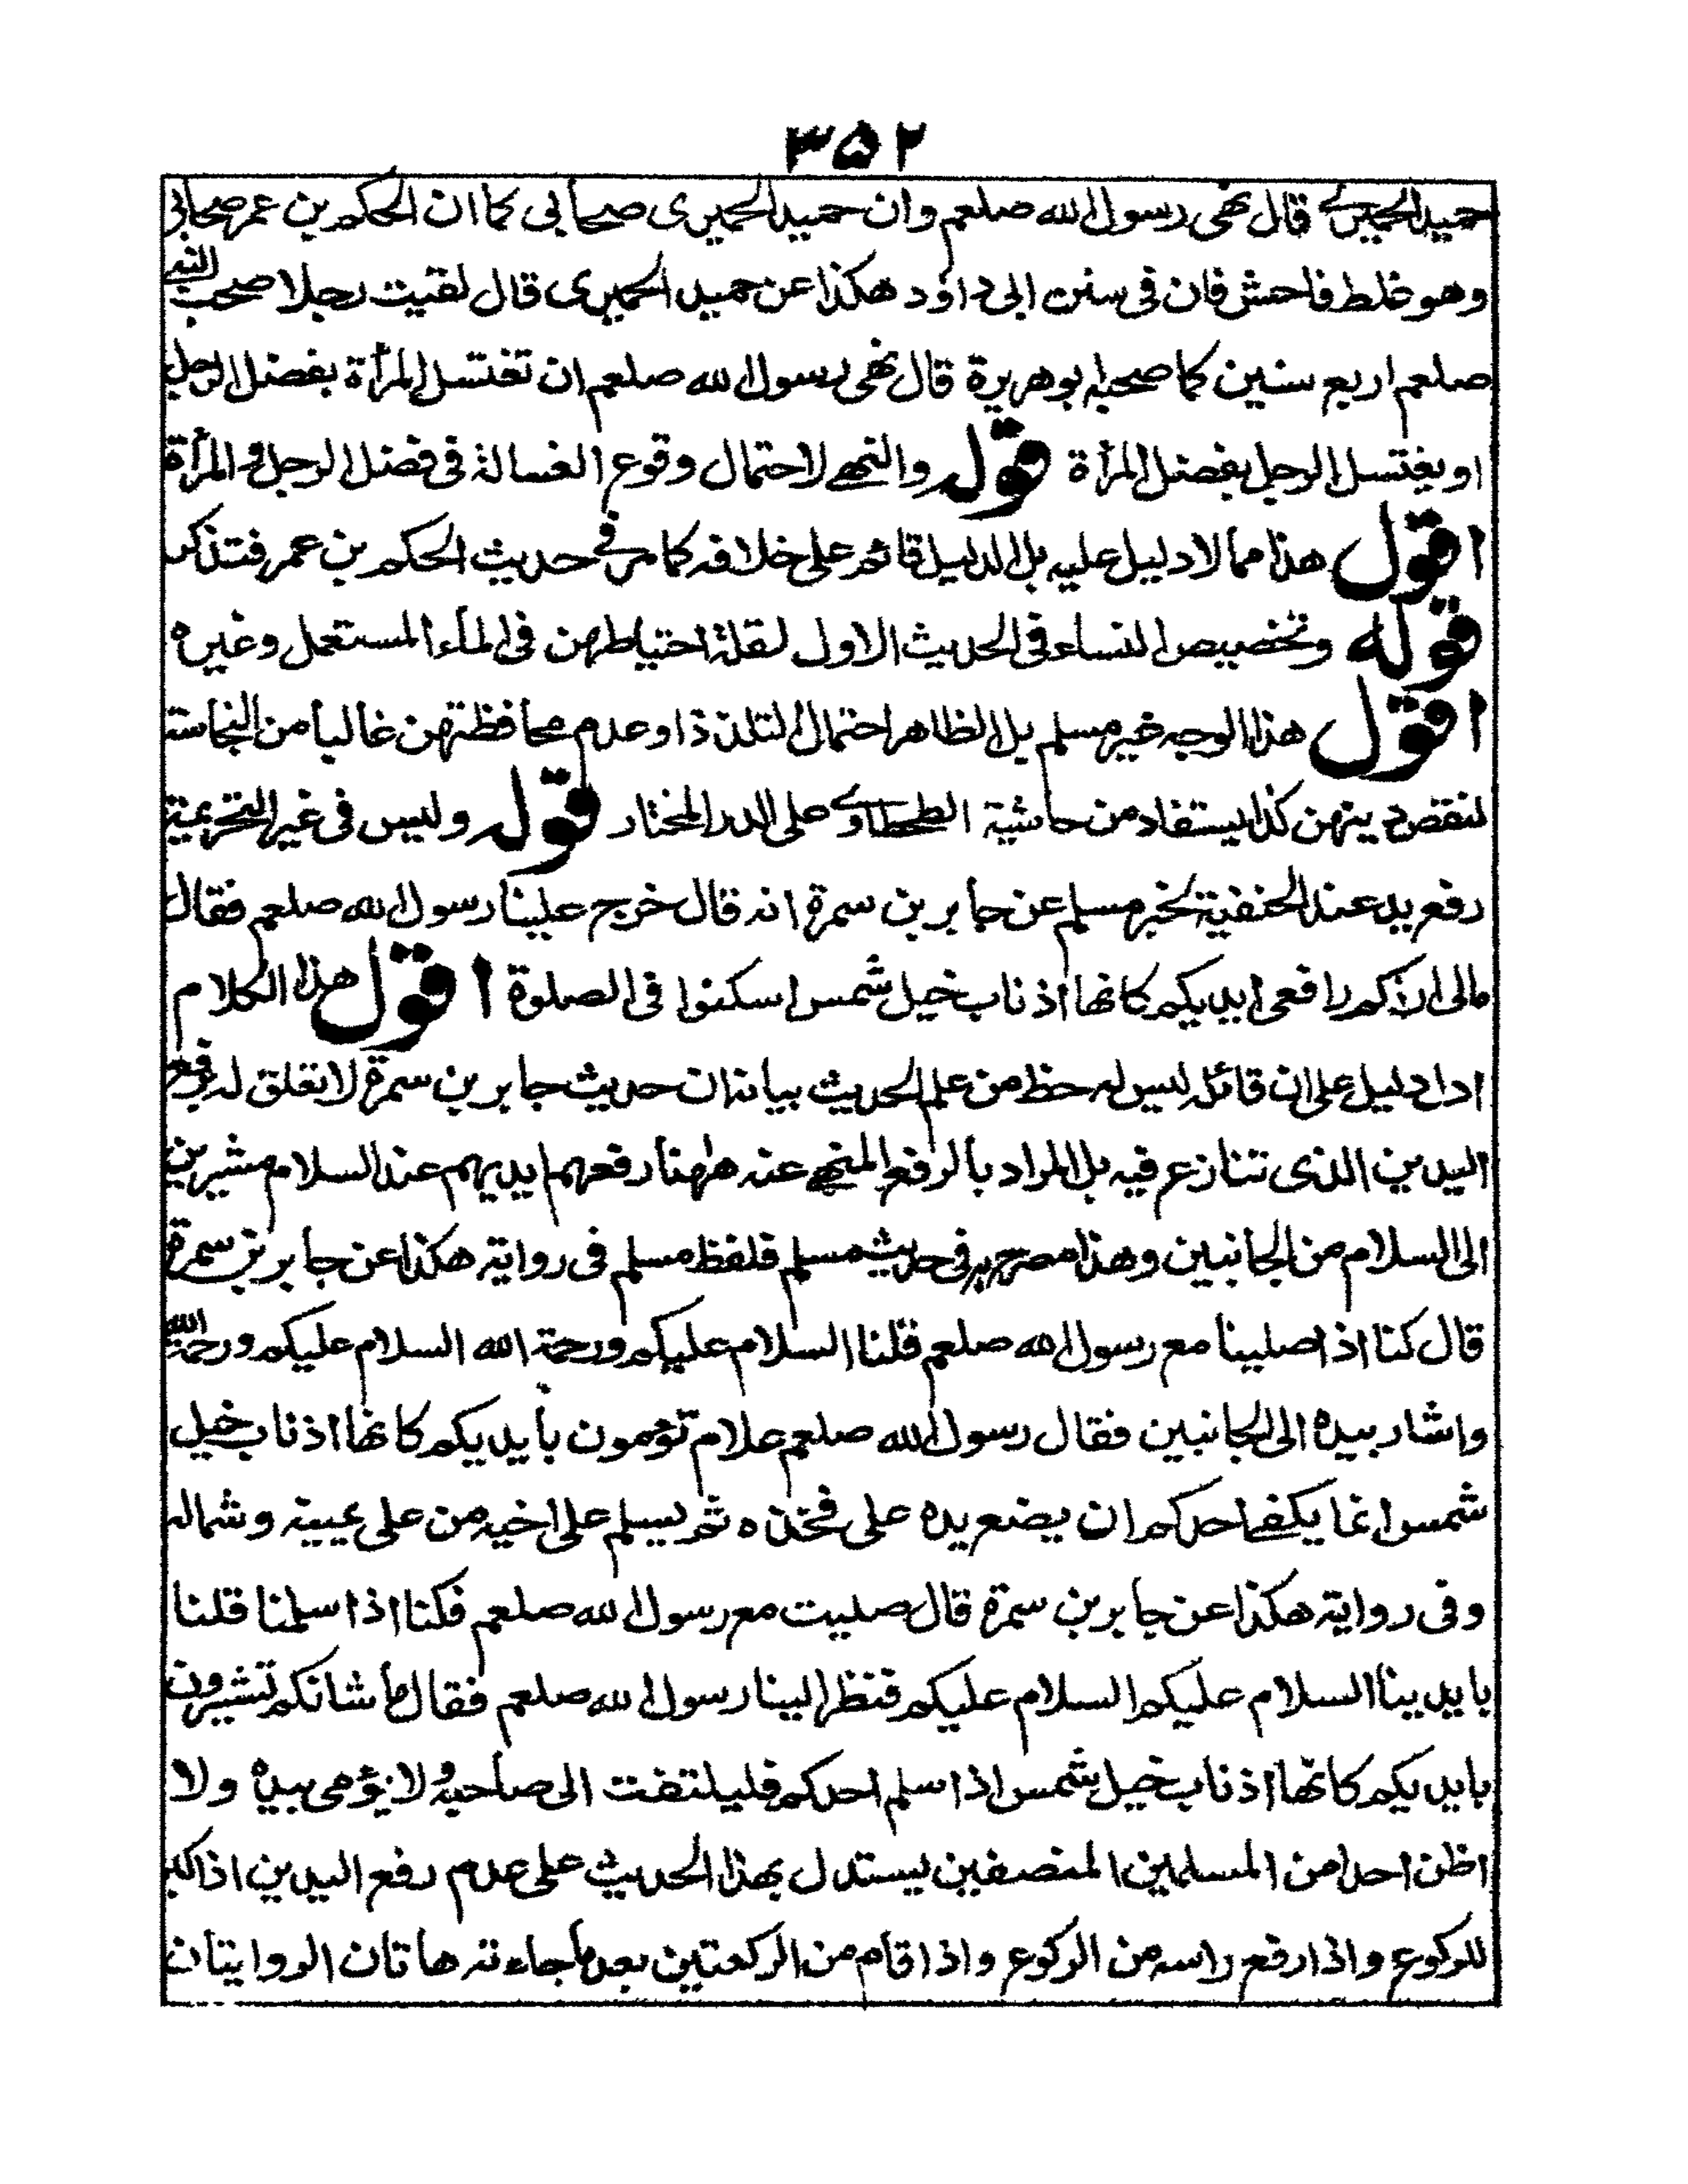 ٣٥٢
حميد الحميرى قال نهى رسول الله صلعم وان حميد الحميرى صحابى كما ان الحكم بن عمر صحابى
وهو غلط فاحش فان فى سنن ابى داؤد هكذا عن حميد الحميرى قال لقيت رجلا صحب النبى
صلعم اربع سنين كما صحبه ابوهريرة قال نهى رسول الله صلعم ان تغتسل المرأة بفضل الرجل
او يغتسل الرجل بفضل المرأة قوله والنهى لاحتمال وقوع الغسالة فى فضل الرجل والمرأة
اقول هذا مما لا دليل عليه بل الدليل قائم على خلافه كما مر فى حديث الحكم بن عمر فتذكر
قوله وتخصيص النساء فى الحديث الاول لقلة احتياطهن فى الماء المستعمل وغيره
اقول هذا الوجه غير مسلم بل الظاهر احتمال التلذذ او عدم محافظتهن غالبا من النجاسة
لنقص دينهن كذا يستفاد من حاشية الطحطاوى على الدر المختار قوله وليس فى غير التحريمة
رفع يد عند الحنفية لخبر مسلم عن جابر بن سمرة انه قال خرج علينا رسول الله صلعم فقال
مالى اراكم رافعى ايديكم كانها اذناب خيل شمس اسكنوا فى الصلوة اقول هذا الكلام
ادل دليل على ان قائله ليس له حظ من علم الحديث بيانه ان حديث جابر بن سمرة لا تعلق له برفع
اليدين الذى تنازع فيه بل المراد بالرفع المنهى عنه ههنا رفعهم ايديهم عند السلام مشيرين
الى السلام من الجانبين وهذا مصرح به فى حديث مسلم فلفظ مسلم فى رواية هكذا عن جابر بن سمرة
قال كنا اذا صلينا مع رسول الله صلعم قلنا السلام عليكم ورحمة الله السلام عليكم ورحمة الله
واشار بيده الى الجانبين فقال رسول الله صلعم علام تؤمون بأيديكم كانها اذناب خيل
شمس انما يكفى احدكم ان يضع يده على فخذه ثم يسلم على اخيه من على يمينه وشماله
وفى رواية هكذا عن جابر بن سمرة قال صليت مع رسول الله صلعم فكنا اذا سلمنا قلنا
بايدينا السلام عليكم السلام عليكم فنظر الينا رسول الله صلعم فقال ما شانكم تشيرون
بايديكم كانها اذناب خيل شمس اذا سلم احدكم فليلتفت الى صاحبه ولا يؤمى بيده ولا
اظن احدا من المسلمين المنصفين يستدل بهذا الحديث على عدم رفع اليدين اذا كبر
للركوع واذا رفع راسه من الركوع واذا قام من الركعتين بعد ما جاءته هاتان الروايتان